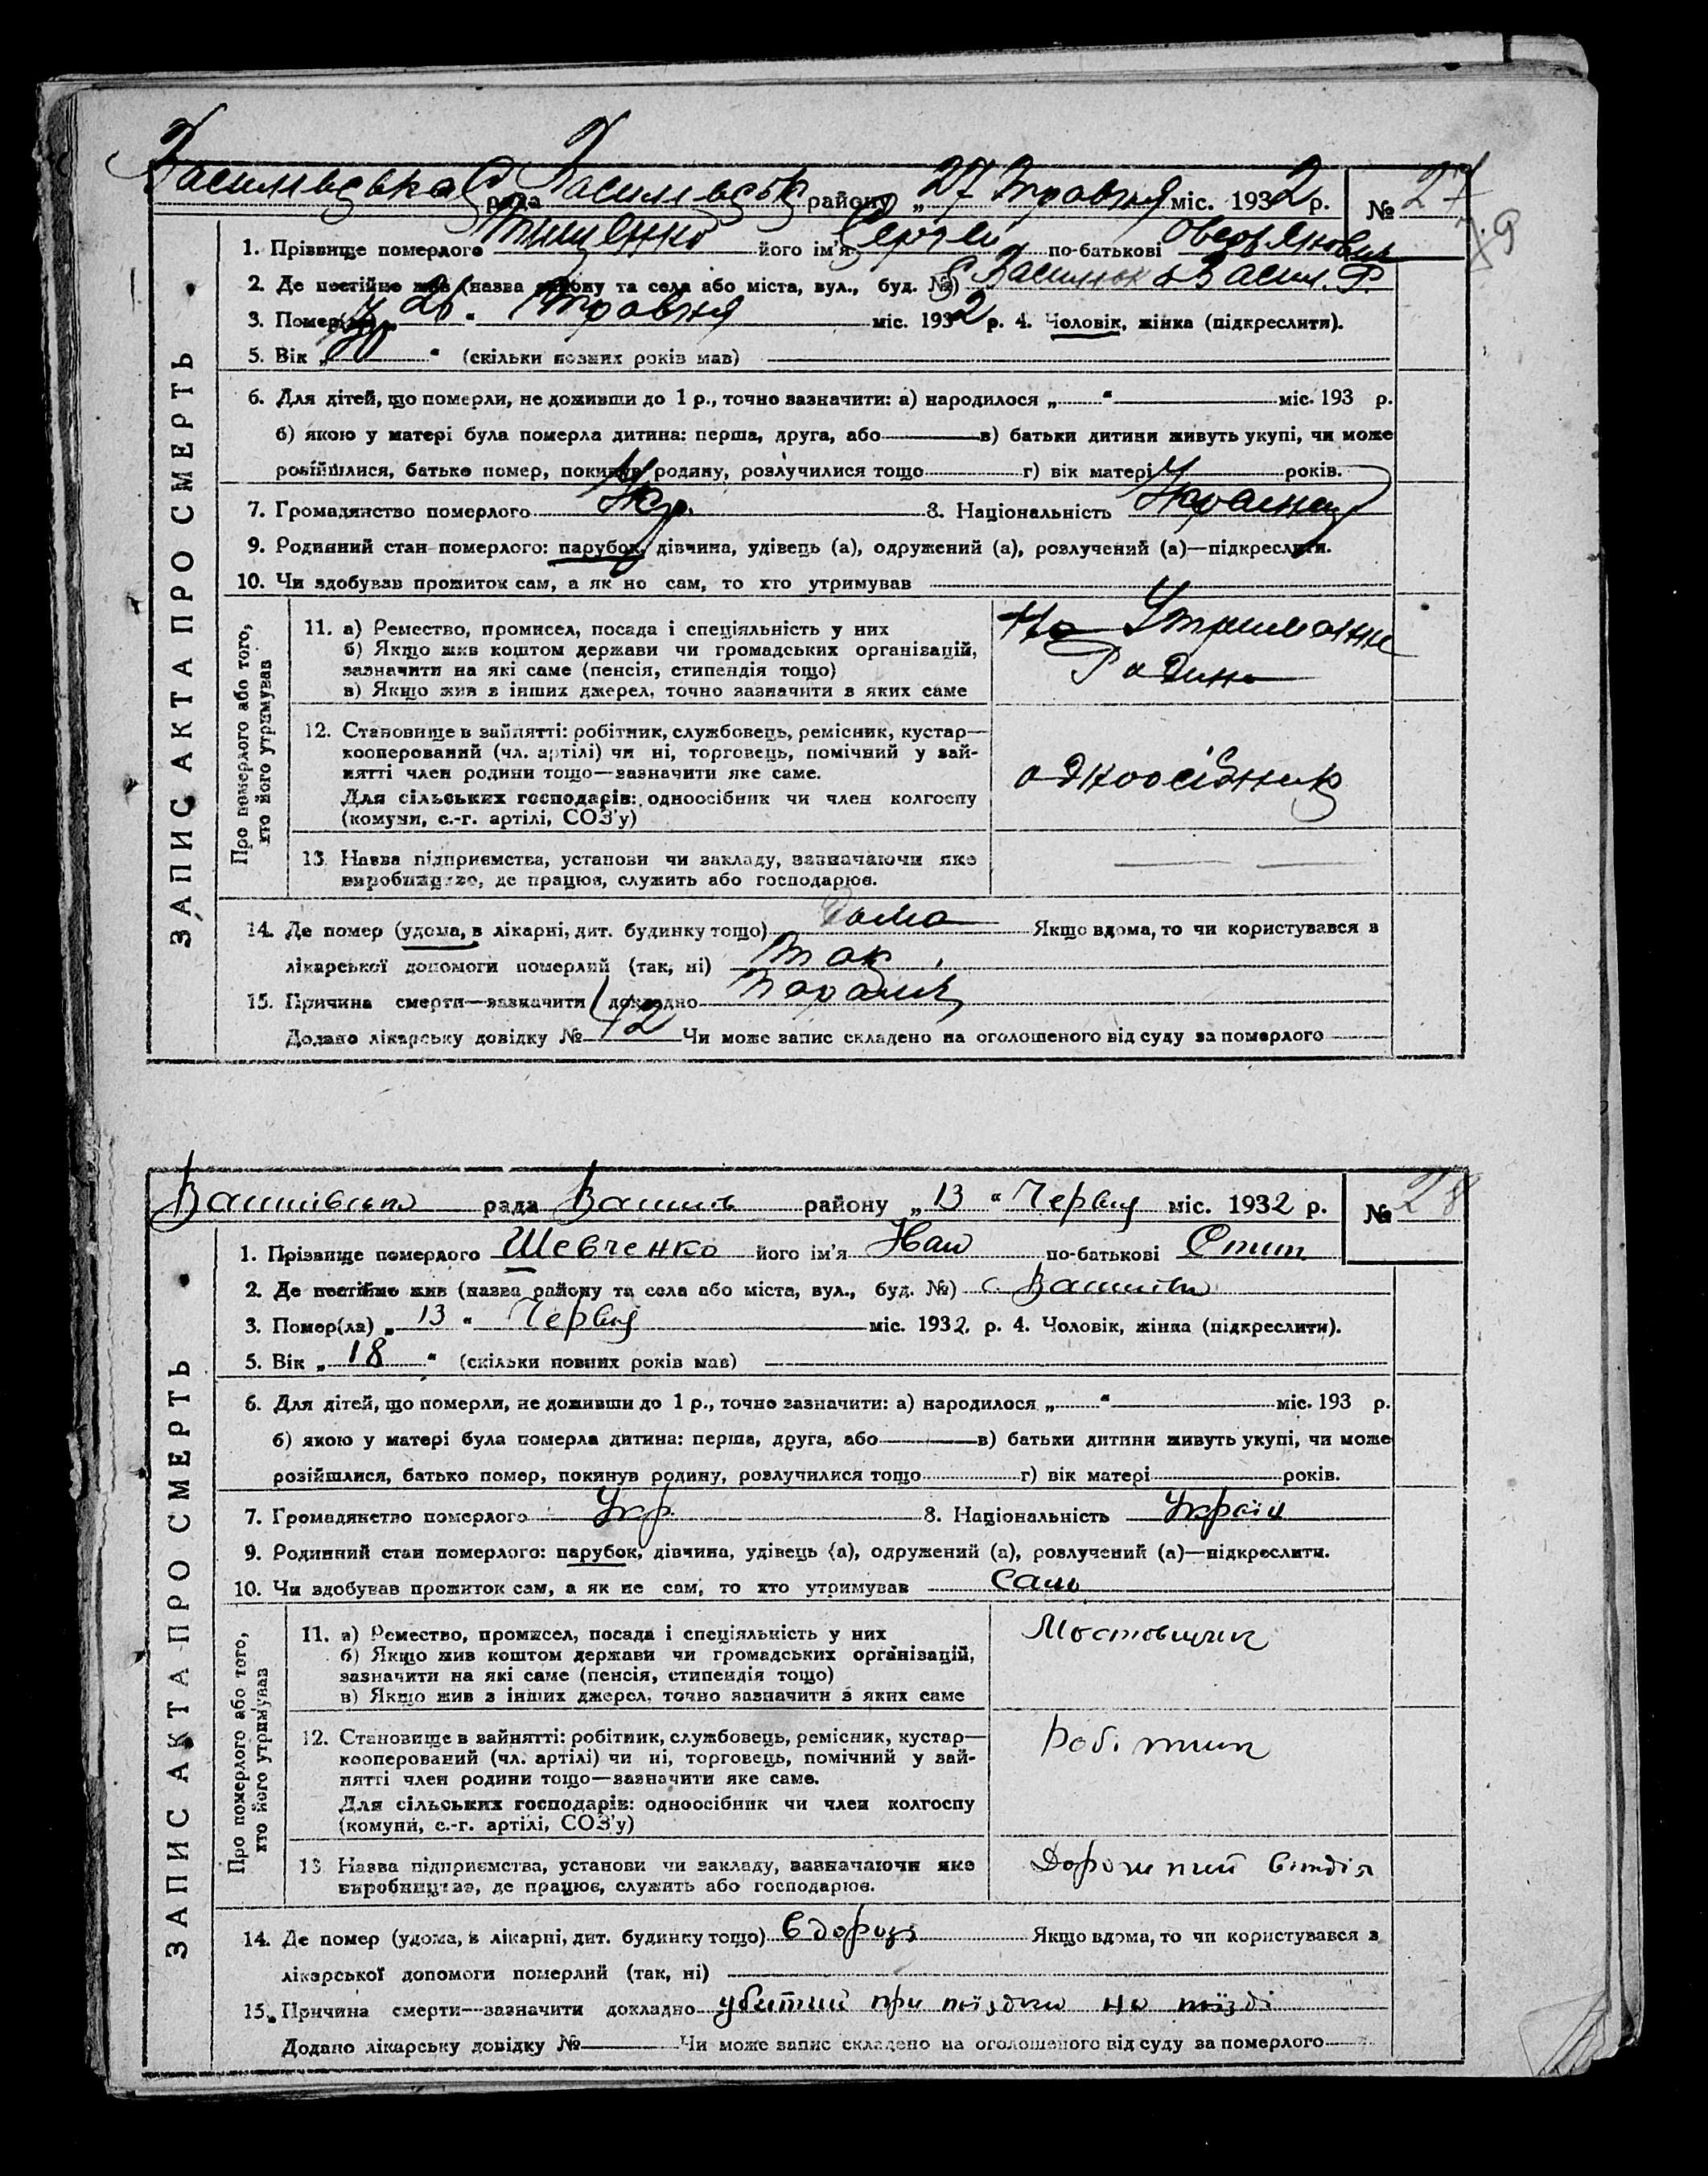 Василівська рада Василівськ району „27 Травня міс. 1932 р. № 27
1. Прізвище померлого Тищенко його ім'я Сергей по-батькові
2. Де постійно жив (назва району та села або міста, вул., буд. №) С Василівк Васил. Р.
3. Помер(ла) „ 26 “ Травня міс. 1932 р. 4. Чоловік, жінка (підкреслити).
5. Вік „ “ (скільки повних років мав)
6. Для дітей, що померли, не доживши до 1 р., точно зазначити: а) народилося „ “ міс. 193 р.
б) якою у матері була померла дитина: перша, друга, або в) батьки дитини живуть укупі, чи може
розійшлися, батько помер, покинув родину, розлучилися тощо г) вік матері років.
7. Громадянство померлого Укр. 8. Національність Українец
9. Родинний стан померлого: парубок, дівчина, удівець (а), одружений (а), розлучений (а)—підкреслити.
10. Чи здобував прожиток сам, а як не сам, то хто утримував
ЗАПИС АКТА ПРО СМЕРТЬ
Про померлого або того,
хто його утримував
11. а) Ремество, промисел, посада і спеціяльність у них
б) Якщо жив коштом держави чи громадських організацій,
зазначити на які саме (пенсія, стипендія тощо)
в) Якщо жив з інших джерел, точно зазначити з яких саме
На Утриманне
Родини
12. Становище в зайнятті: робітник, службовець, ремісник, кустар—
кооперований (чл. артілі) чи ні, торговець, помічний у зай-
нятті член родини тощо—зазначити яке саме.
Для сільських господарів: одноосібник чи член колгоспу
(комуни, с.-г. артілі, СОЗ'у)
одноосібник
13. Назва підприємства, установи чи закладу, зазначаючи яке
виробництво, де працює, служить або господарює.
14. Де помер (удома, в лікарні, дит. будинку тощо) Дома Якщо вдома, то чи користувався з
лікарської допомоги померлий (так, ні) Так
15. Причина смерти—зазначити докладно Параліч
Додано лікарську довідку № 42 Чи може запис складено на оголошеного від суду за померлого
Василівська рада Василів району „13 “ Червня міс. 1932 р. № 28
1. Прізвище померлого Шевченко його ім'я Иван по-батькові
2. Де постійно жив (назва району та села або міста, вул., буд. №) с Василівка
3. Помер(ла) „ 13 “ Червня міс. 1932. р. 4. Чоловік, жінка (підкреслити).
5. Вік „ 18 “ (скільки повних років мав)
6. Для дітей, що померли, не доживши до 1 р., точно зазначити: а) народилося „ “ міс. 193 р.
б) якою у матері була померла дитина: перша, друга, або в) батьки дитини живуть укупі, чи може
розійшлися, батько помер, покинув родину, розлучилися тощо г) вік матері років.
7. Громадянство померлого Укр. 8. Національність Україн
9. Родинний стан померлого: парубок, дівчина, удівець (а), одружений (а), розлучений (а)—підкреслити.
10. Чи здобував прожиток сам, а як не сам, то хто утримував Сам
ЗАПИС АКТА ПРО СМЕРТЬ
Про померлого або того,
хто його утримував
11. а) Ремество, промисел, посада і спеціяльність у них
б) Якщо жив коштом держави чи громадських організацій,
зазначити на які саме (пенсія, стипендія тощо)
в) Якщо жив з інших джерел, точно зазначити з яких саме
Мостовщик
12. Становище в зайнятті: робітник, службовець, ремісник, кустар—
кооперований (чл. артілі) чи ні, торговець, помічний у зай-
нятті член родини тощо—зазначити яке саме.
Для сільських господарів: одноосібник чи член колгоспу
(комуни, с.-г. артілі, СОЗ'у)
Робітник
13. Назва підприємства, установи чи закладу, зазначаючи яке
виробництво, де працює, служить або господарює.
Дорожний
14. Де помер (удома, в лікарні, дит. будинку тощо) в дорозі Якщо вдома, то чи користувався з
лікарської допомоги померлий (так, ні)
15. Причина смерти—зазначити докладно убитий при поїздки на поїзді
Додано лікарську довідку № Чи може запис складено на оголошеного від суду за померлого